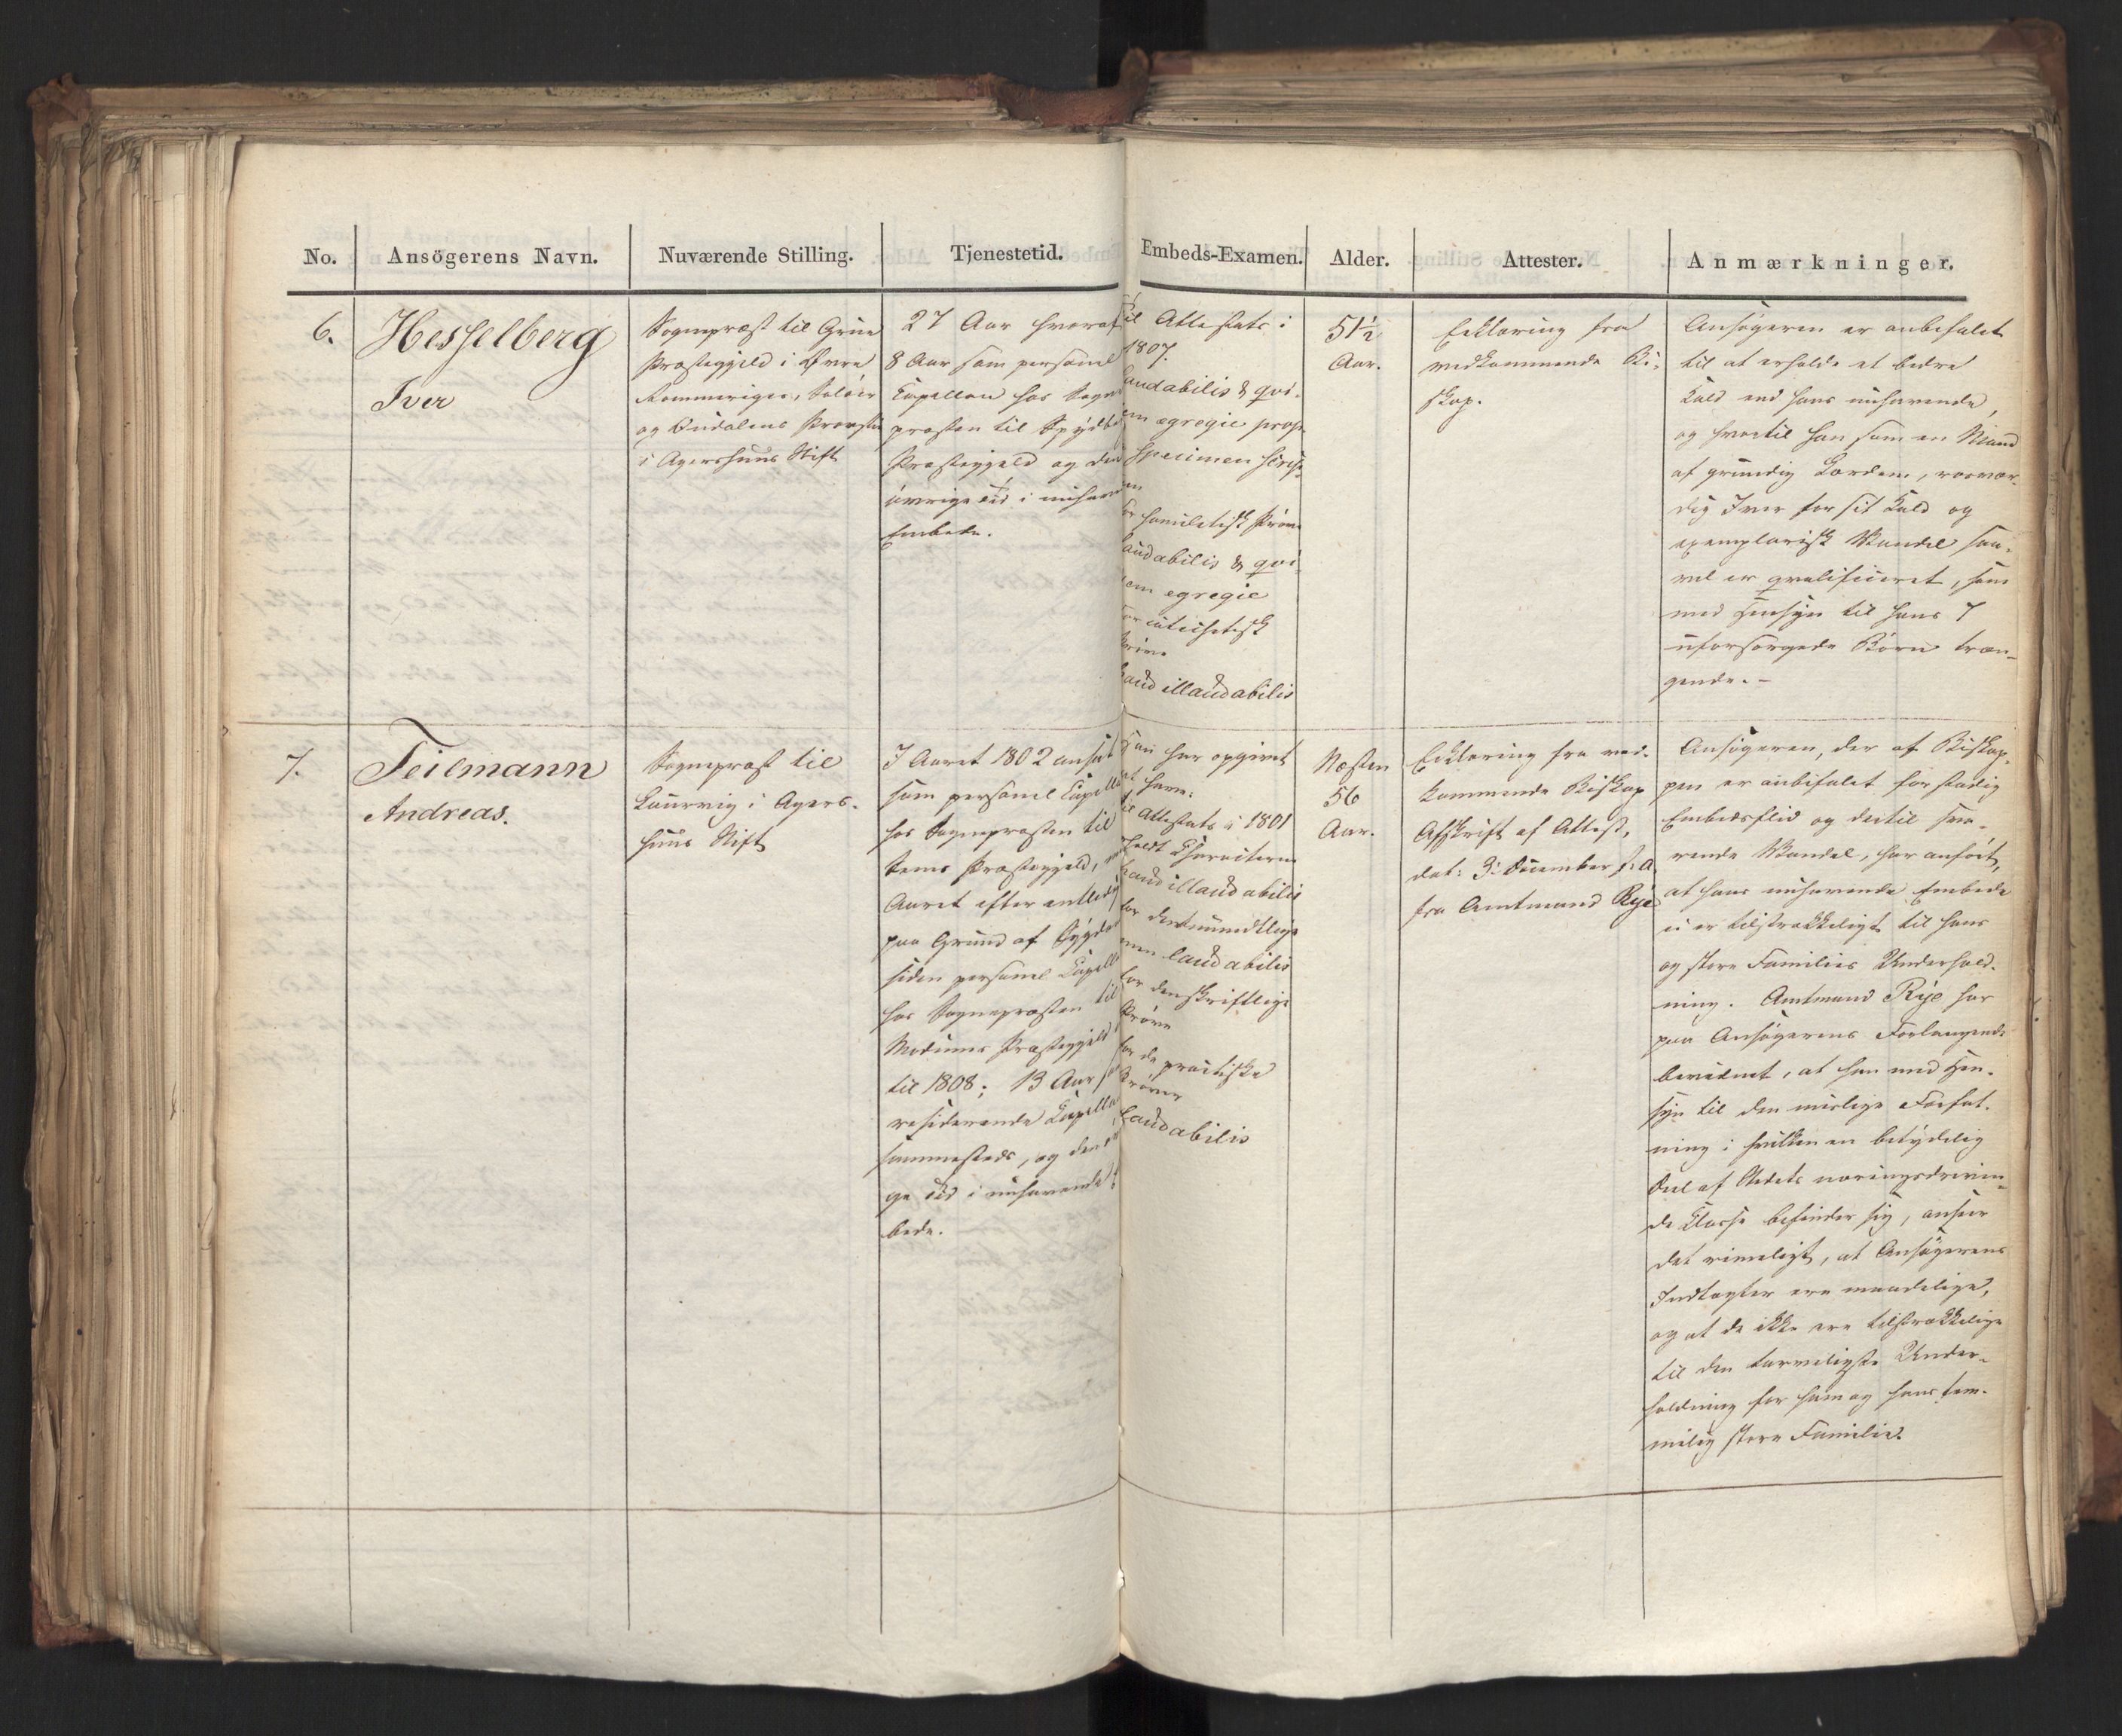 No.
Ansögerens Navn.
Nuværende Stilling.
Tjenestetid.
Embeds-Examen.
Alder.
Attester.
Anmærkninger.
6.
Hesselberg
Iver
Sognepræst til Grue
Præstegjeld i Øvre
Rommeriges, Soløer
og Oudalens Provstie
i Agershuus Stift
27 Aar hvoraf
8 Aar som personel
Capellan hos Sogne
præsten til Spydbe
Præstegjeld og den
øvrige Tid i nuhave
Embede.
til Attestats i
1807.
laudabilis & qvi-
dem egregie
specimen
for homiletisk Prøve
laudabilis & qvi-
dem egregie
for catechetisk
Prøve
haud illaudabilis
51½
Aar.
Erklæring fra
vedkommende Bi-
skop.
Ansøgeren er anbefalet
til at erholde et bedre
Kald end hans nuhavende,
og hvortil han som en Mand
af grundig Lærdom, roesvær-
dig Iver for sit Kald og
exemplarisk Vandel saa-
vel er qvalificeret, som
med Hensyn til hans 7
uforsørgede Børn træn-
gende. -
7.
Teilmann
Andreas.
Sognepræst til
Laurvig i Agers-
huus Stift
I Aaret 1802 ansat
som personel Capella
hos Sognepræsten til
Sems Præstegjeld,
Aaret efter entledig
paa Grund af Sygdom
siden personel Capella
hos Sognepræsten til
Modums Præstegjeld
til 1808; 13 Aar som
residerende Capella
sammesteds, og den
ge Tid i nuhavende
bede.
Han har opgivet
at have,
til Attestats i 1801
erholdt Characteren
haud illaudabilis
for den mundtlige
men laudabilis
for den skriftlige
Prøve
for de practiske
Prøver
Laudabilis
Næsten
56
Aar.
Erklæring fra ved-
kommende Biskop
Afskrift af Attest,
dat: 3: December f: A.
fra Amtmand Rye
Ansøgeren, der af Biskop-
pen er anbefalet for stadig
Embedsflid og dertil sva-
rende Vandel, har anført,
at hans nuhavende Embede
ei er tilstrækkeligt til hans
og store Families Underhold-
ning. Amtmand Rye har
paa Ansøgerens Forlangende
bevidnet, at han med Hen-
syn til den mislige Forfat-
ning i hvilken en betydelig
Deel af Stedets næringsdriven-
de Classe befinder sig, anseer
det rimeligt, at Ansøgerens
Indtægter ere maadelige,
og at de ikke ere tilstrækkelige
til den tarveligste Under-
holdning for ham og hans tem-
melig store Familie.